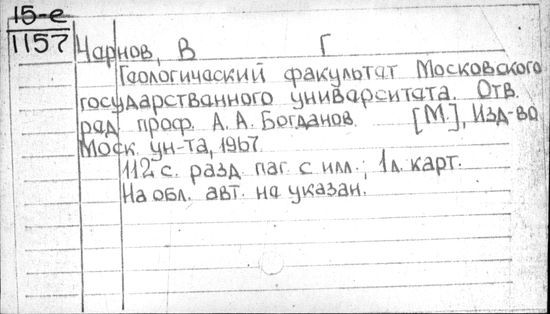 15-е
1157
Чернов, В Г
Геологический факультет Московского
государственного университета. Отв.
ред. проф. А. А. Богданов. [М.], Изд-во
Моск. ун-та, 1967.
112 с. разд. паг. с илл.; 1 л. карт.
На обл. авт. не указан.